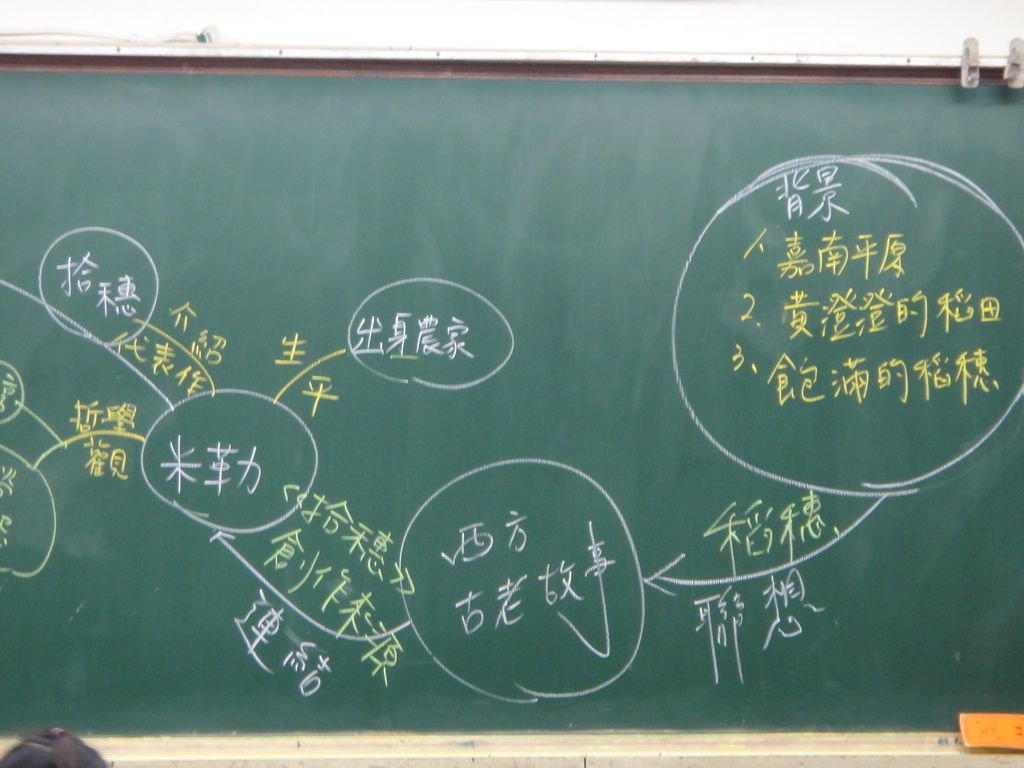 背景
1. 嘉南平原
2. 黄澄澄的稻田
3. 飽滿的稻穗
稻穗
聯想
西方
古老故事
《拾穗》
創作來源
連結
米勒
生平
出身農家
介紹
代表作
拾穗
哲學
觀